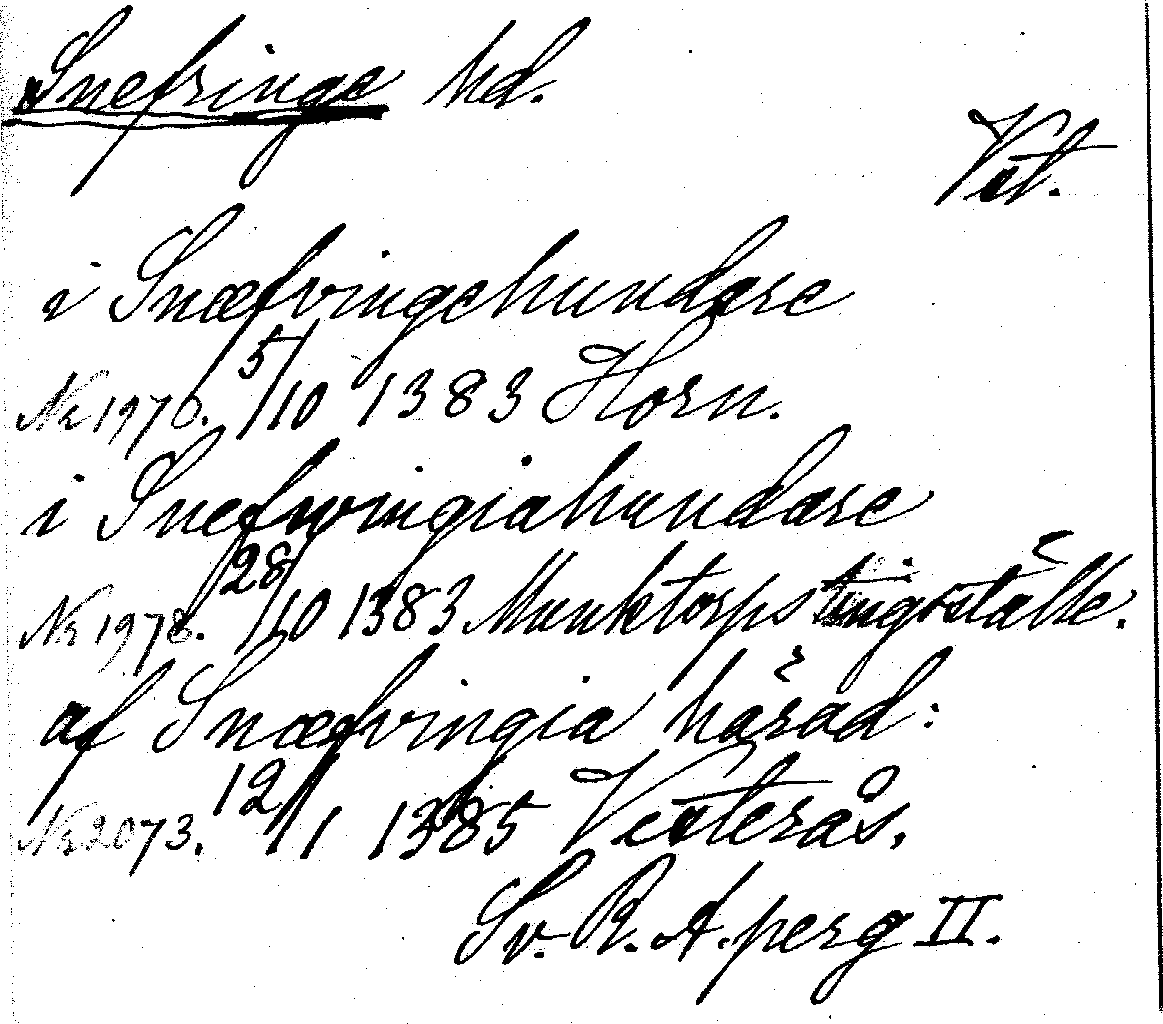 Snefringe hd.
Vst.
i Snæfringehundære
Nr 1970. 5/10 1383 Horn.
i Snefwringiahundære
Nr 1978. 28/10 1383 Munktorps tingställe.
af Snæfringia härad:
Nr 2073. 12/1 1385 Västerås.
Sv. R. A. perg II.